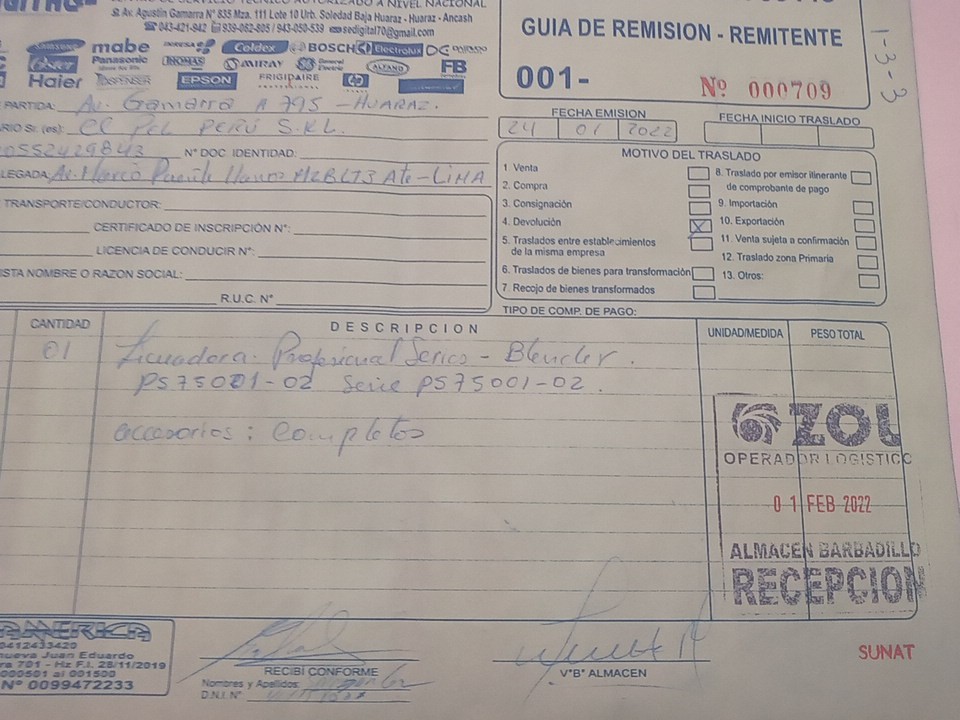 AUTORIZADO A NIVEL NACIONAL
Av. Agustin Gamarra N° 835 Mza. 111 Lote 10 Urb. Soledad Baja Huaraz - Huaraz - Ancash
043-421-942 939-062-805 / 943-050-539 sedigital70@gmail.com
SAMSUNG mabe INRESA Coldex BOSCH Electrolux DAEWOO
Oster Panasonic THOMAS MIRAY General Electric ALFANO FB
Haier EPSON FRIGIDAIRE hp
GUIA DE REMISION - REMITENTE
001- Nº 000709
1-3-3
PARTIDA: Av. Gamarra N 795 - HUARAZ.
ARIO Sr. (es): el Pel PERÚ S.R.L.
0552429843 N° DOC. IDENTIDAD:
LEGADA: Ate - LIMA
FECHA EMISION
24 01 2022
FECHA INICIO TRASLADO
TRANSPORTE/CONDUCTOR:
CERTIFICADO DE INSCRIPCIÓN N°:
LICENCIA DE CONDUCIR N°:
ISTA NOMBRE O RAZON SOCIAL:
R.U.C. N°
MOTIVO DEL TRASLADO
1 Venta
2. Compra
3. Consignación
4. Devolución
5. Traslados entre establecimientos
de la misma empresa
6. Traslados de bienes para transformación
7. Recojo de bienes transformados
8. Traslado por emisor itinerante
de comprobante de pago
9. Importación
10. Exportación
11. Venta sujeta a confirmación
12. Traslado zona Primaria
13. Otros:
TIPO DE COMP. DE PAGO:
CANTIDAD DESCRIPCION UNIDAD/MEDIDA PESO TOTAL
01 Licuadora: Profesional Series - Blender.
PS75001-02 Serie PS75001-02.
accesorios: Completos
ZOL
OPERADOR LOGISTICO
01 FEB 2022
ALMACEN BARBADILLO
RECEPCION
AMERICA
0412433420
nueva Juan Eduardo
ra 701 - Hz F.I. 28/11/2019
000501 al 001500
N° 0099472233
RECIBÍ CONFORME
Nombres y Apellidos:
D.N.I. N°
V°B° ALMACEN
SUNAT